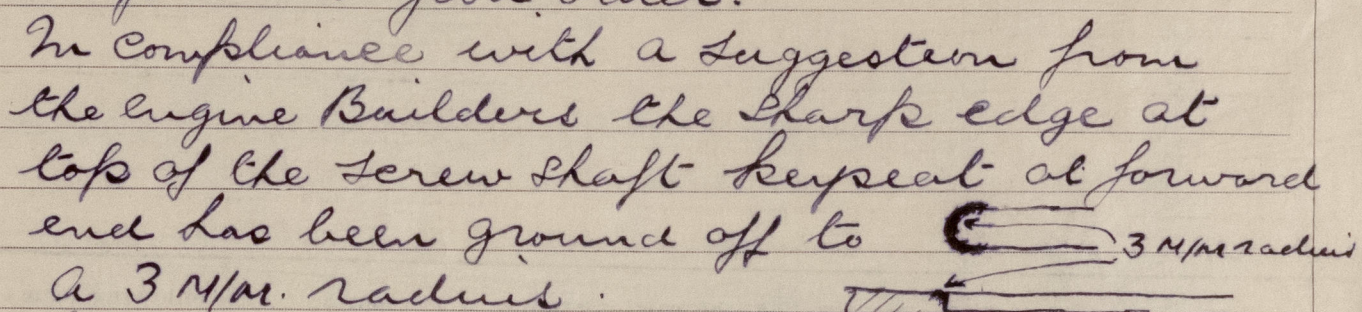 In compliance with a suggestion from
the engine Builders the sharp edge at
top of the screw shaft keyseat at forward
end has been ground off to
3 M/M radius
a 3 M/M. radius.